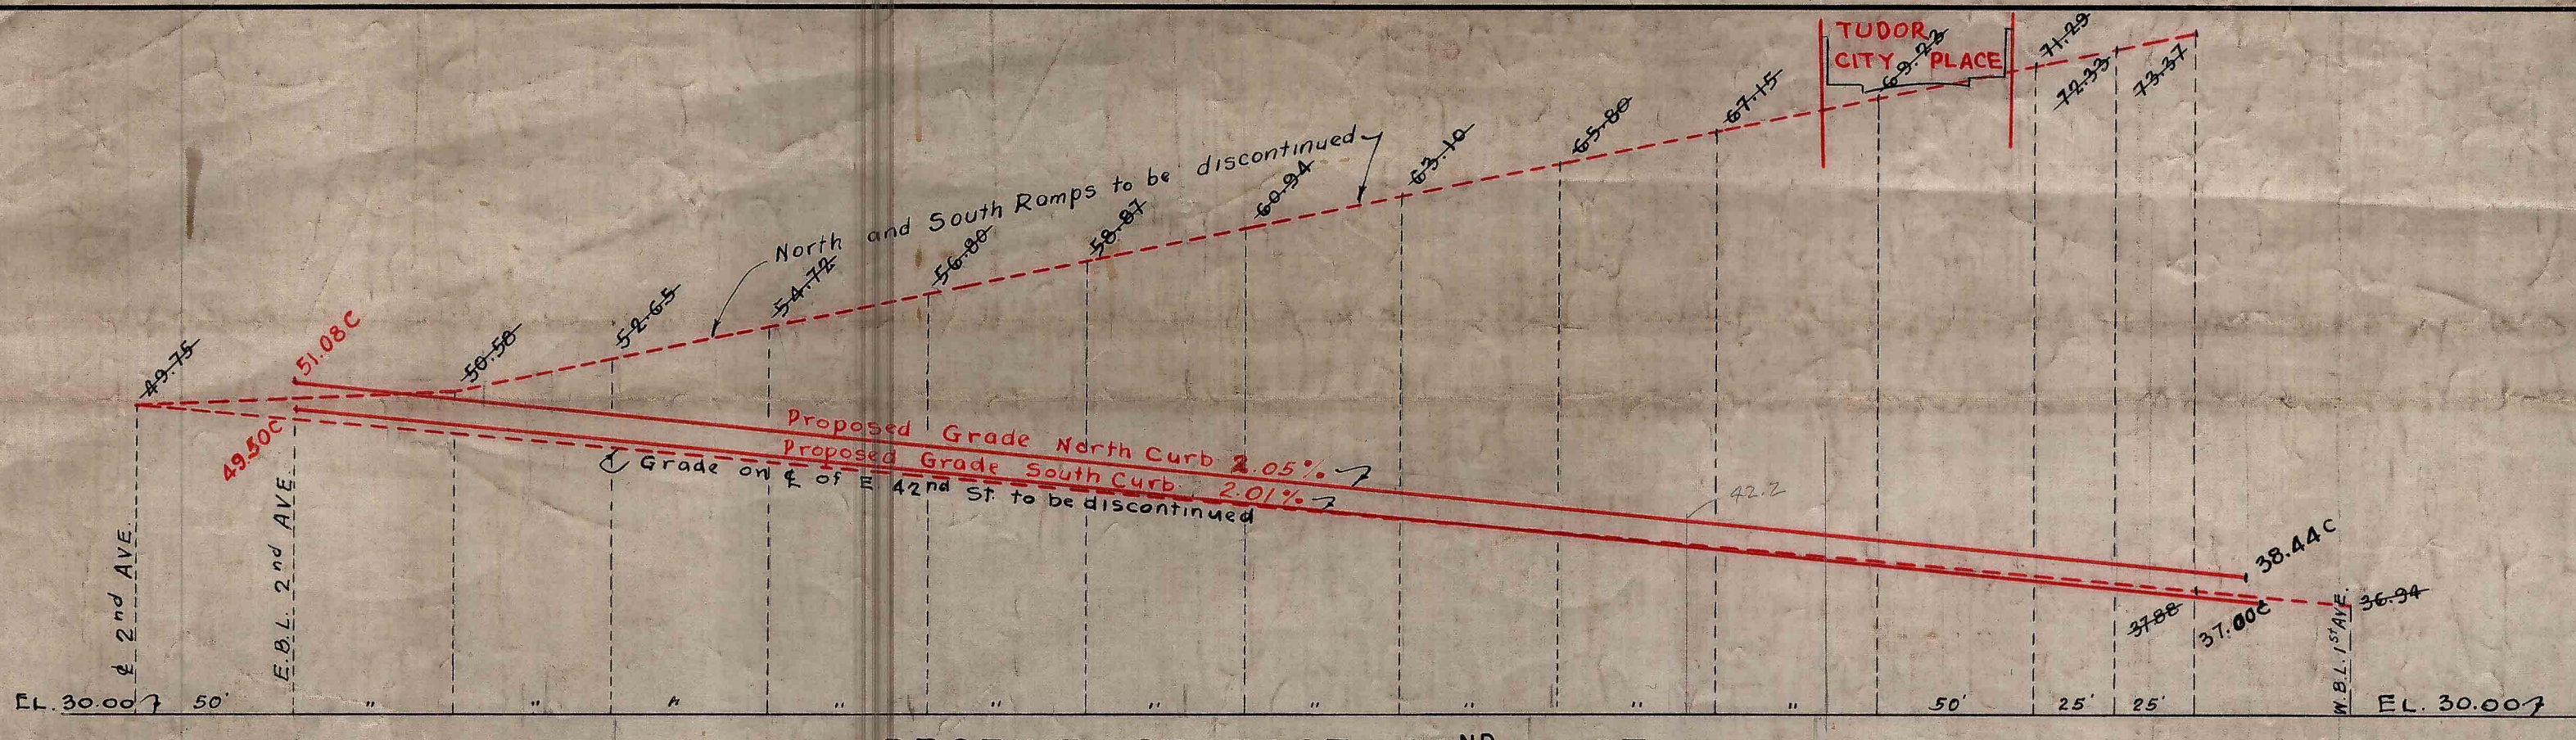 TUDOR
CITY PLACE
49.75
51.08C
50.58
52.65
54.72
56.80
58.87
60.94
63.10
65.80
67.15
69.23
71.29
72.33
73.37
North and South Ramps to be discontinued
49.50C
Proposed Grade North Curb 2.05%
Proposed Grade South Curb 2.01%
Grade on ℄ of E 42nd St. to be discontinued
42.2
38.44C
37.88
37.00C
36.94
℄ 2nd AVE.
E.B.L. 2nd AVE.
W.B.L. 1st AVE.
EL. 30.00 50' " " " " " " " " " " 50' 25' 25' EL. 30.00